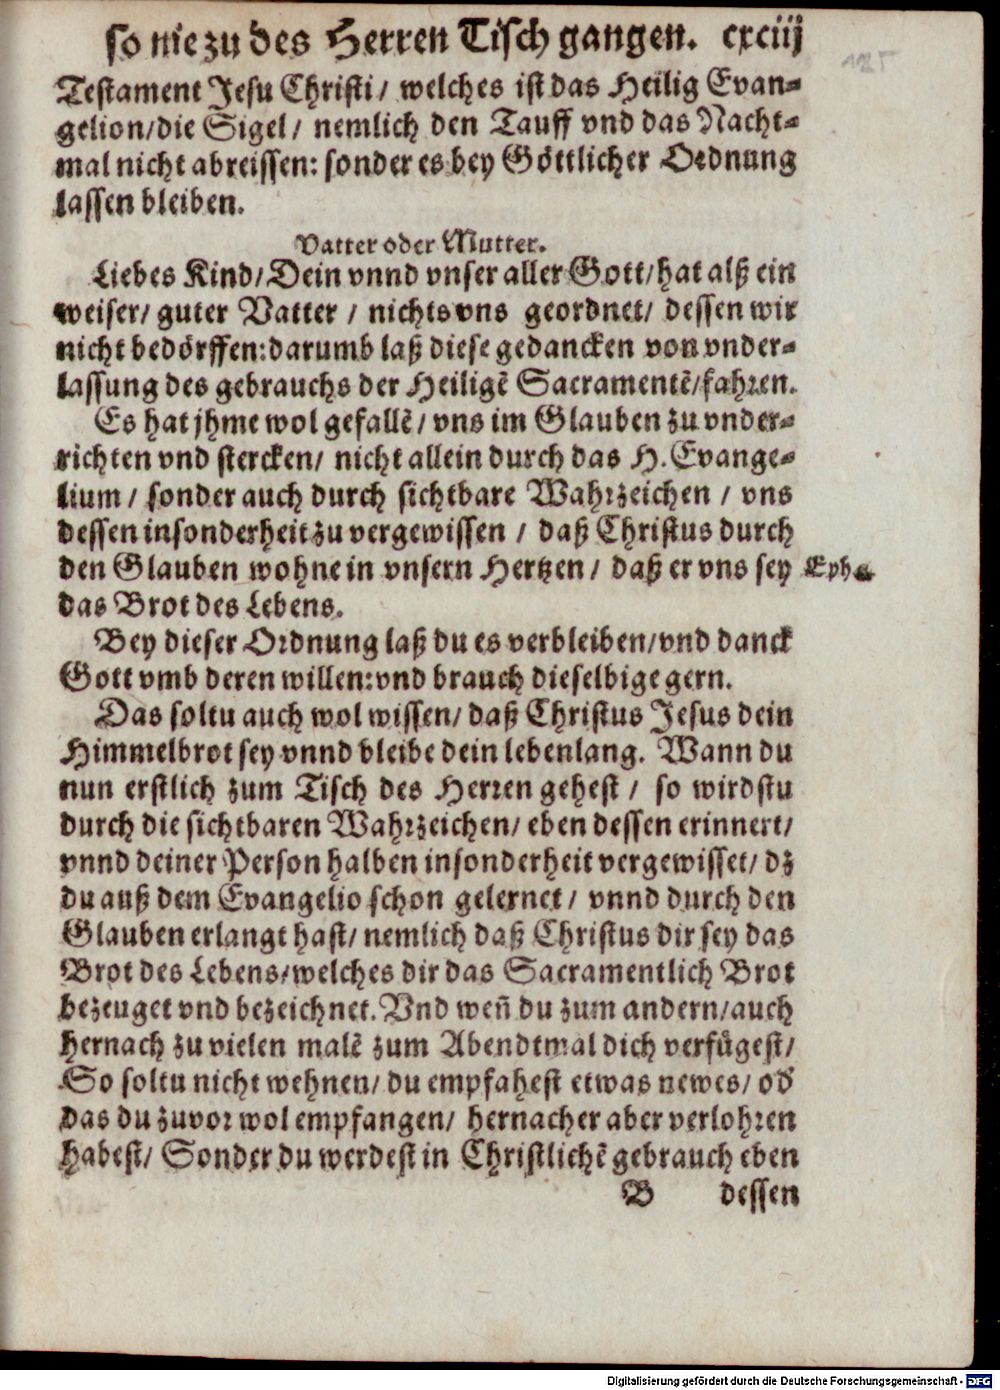 so nie zu des Herren Tisch gangen. cxciij
Testament Jesu Christi/ welches ist das Heilig Evan-
gelion/die Sigel/ nemlich den Tauff vnd das Nacht-
mal nicht abreissen: sonder es bey Göttlicher Ordnung
lassen bleiben.
Vatter oder Mutter.
Liebes Kind/Dein vnnd vnser aller Gott/hat alß ein
weiser/ guter Vatter / nichts vns geordnet/ dessen wir
nicht bedörffen:darumb laß diese gedancken von vnder-
lassung des gebrauchs der Heiligẽ Sacramentẽ/fahren.
Es hat jhme wol gefallẽ/ vns im Glauben zu vnder-
richten vnd stercken/ nicht allein durch das H. Evange-
lium / sonder auch durch sichtbare Wahrzeichen / vns
dessen insonderheit zu vergewissen / daß Christus durch
den Glauben wohne in vnsern Hertzen / daß er vns sey Eph
das Brot des Lebens.
Bey dieser Ordnung laß du es verbleiben/vnd danck
Gott vmb deren willen:vnd brauch dieselbige gern.
Das soltu auch wol wissen/ daß Christus Jesus dein
Himmelbrot sey vnnd bleibe dein lebenlang. Wann du
nun erstlich zum Tisch des Herren gehest / so wirdstu
durch die sichtbaren Wahrzeichen/ eben dessen erinnert/
vnnd deiner Person halben insonderheit vergewisset/ dz
du auß dem Evangelio schon gelernet / vnnd durch den
Glauben erlangt hast/ nemlich daß Christus dir sey das
Brot des Lebens/welches dir das Sacramentlich Brot
bezeuget vnd bezeichnet. Vnd weñ du zum andern/auch
hernach zu vielen malẽ zum Abendtmal dich verfügest/
So soltu nicht wehnen/ du empfahest etwas newes/ ob
das du zuvor wol empfangen/ hernacher aber verlohren
habest/ Sonder du werdest in Christlichẽ gebrauch eben
B dessen
Digitalisierung gefördert durch die Deutsche Forschungsgemeinschaft - DFG